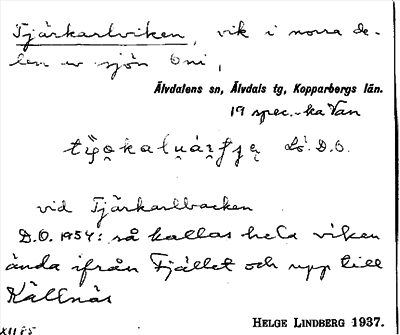 Tjärkarlviken, vik i norra de-
len av sjön Oni,
Älvdalens sn, Älvdals tg, Kopparbergs län.
19 spec.-kartan
Ls. D.O.
vid Tjärkarlbacken
D.O. 1954: så kallas hela viken
ända ifrån Fjället och upp till
Källnäs
HELGE LINDBERG 1937.